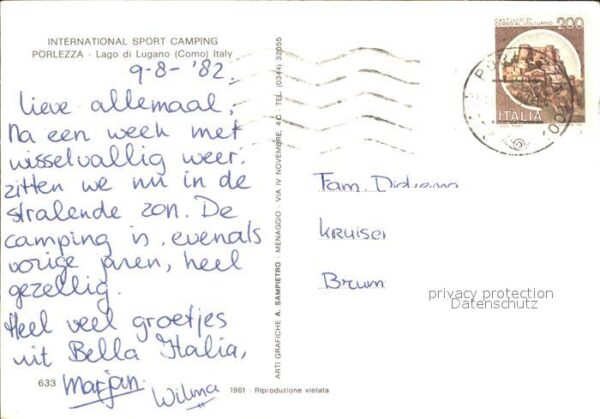 INTERNATIONAL SPORT CAMPING
PORLEZZA - Lago di Lugano (Como) Italy
9-8-'82.
Lieve allemaal,
Na een week met
wisselvallig weer.
zitten we nu in de
stralende zon. De
camping is, evenals
vorige jaren, heel
gezellig.
Heel veel groetjes
uit Bella Italia,
Marjan.
Wilma
633
1981 - Riproduzione vietata
ARTI GRAFICHE A. SAMPIETRO - MENAGGIO - VIA IV NOVEMBRE, 4 C. TEL. (0344) 32655
CASTELLO DI
CERRO AL VOLTURNO
200
ITALIA
Fam.
Kruiser
Brum
privacy protection
Datenschutz